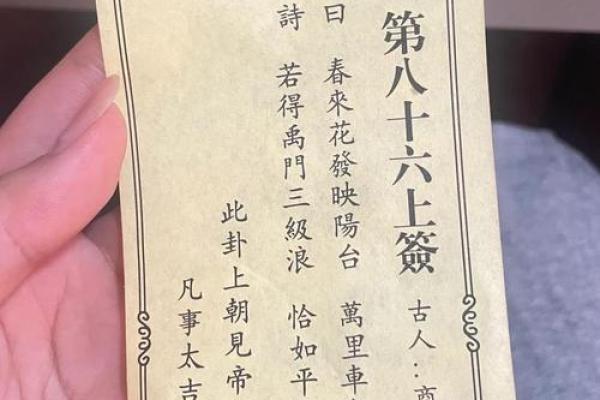 第八十六上簽 古人：商
曰 春來花發映陽台 萬里車
詩 若得禹門三級浪 恰如平
此卦上朝見帝
凡事太吉